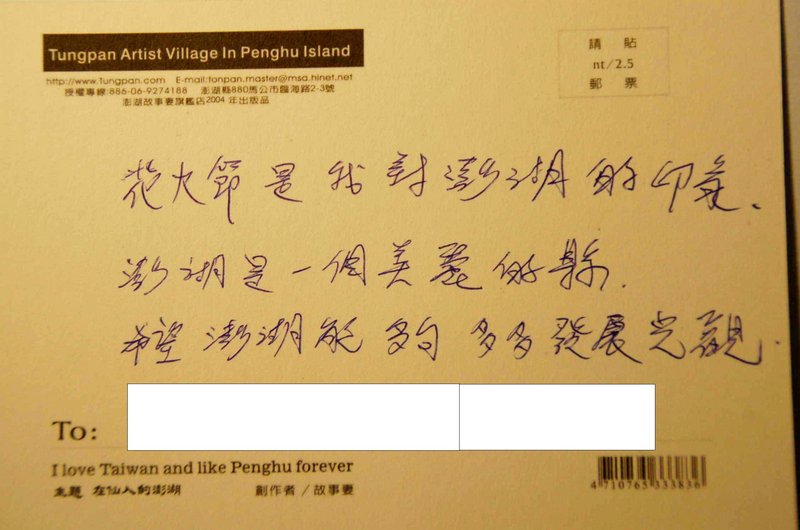 Tungpan Artist Village In Penghu Island
http://www.Tungpan.com E-mail:tonpan.master@msa.hinet.net
授權專線:886-06-9274188 澎湖縣880馬公市臨海路2-3號
澎湖故事妻旗艦店2004 年出版品
請貼
nt/2.5
郵票
花火節是我對澎湖的印象.
澎湖是一個美麗的縣.
希望澎湖能夠多多發展光觀.
To:
I love Taiwan and like Penghu forever
主題 在仙人的澎湖 創作者/故事妻
4 710765 333836